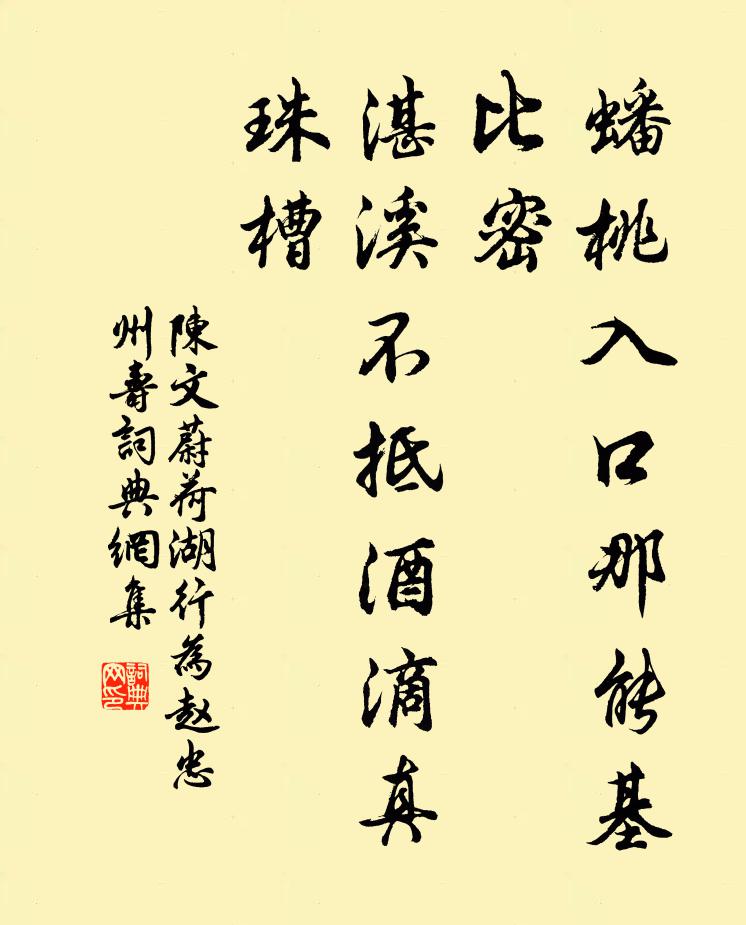 蟠桃入口那能基
比密
湛溪不抵酒滴真
珠槽
陳文蔚荷湖行為赵忠
州壽詞典網集
詞典网印